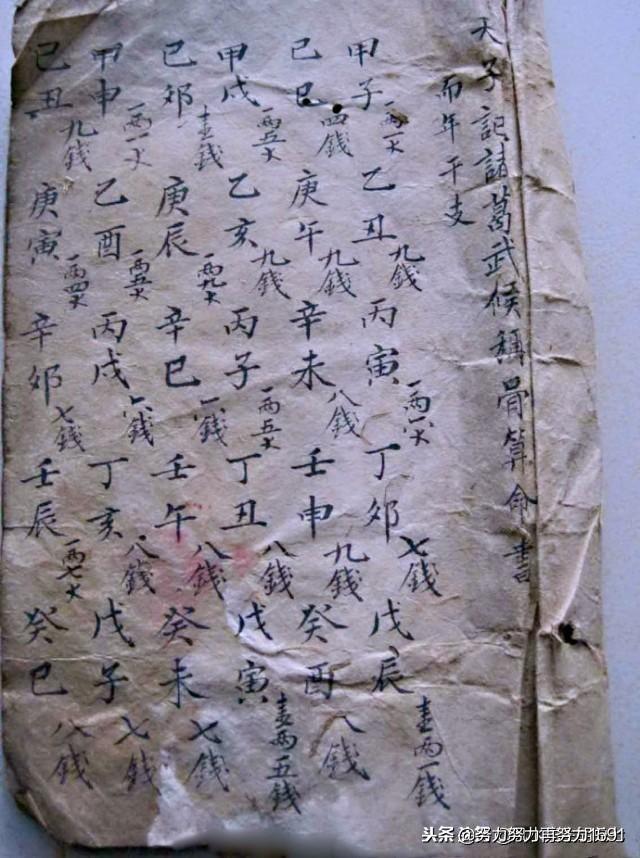 天子記諸葛武候稱骨算命書
而年干支
甲子 一兩一 乙丑 九錢 丙寅 一兩 丁卯 七錢 戊辰 壹兩一錢
己巳 四錢 庚午 九錢 辛未 八錢 壬申 九錢 癸酉 八錢
甲戌 一兩五 乙亥 九錢 丙子 一兩五 丁丑 八錢 戊寅 壹兩五錢
己卯 壹錢 庚辰 一兩九 辛巳 錢 壬午 八錢 癸未 七錢
甲申 一兩一 乙酉 一兩五 丙戌 錢 丁亥 八錢 戊子 七錢
己丑 九錢 庚寅 一兩四 辛卯 七錢 壬辰 一兩七 癸巳 八錢
头条 @努力努力再努力